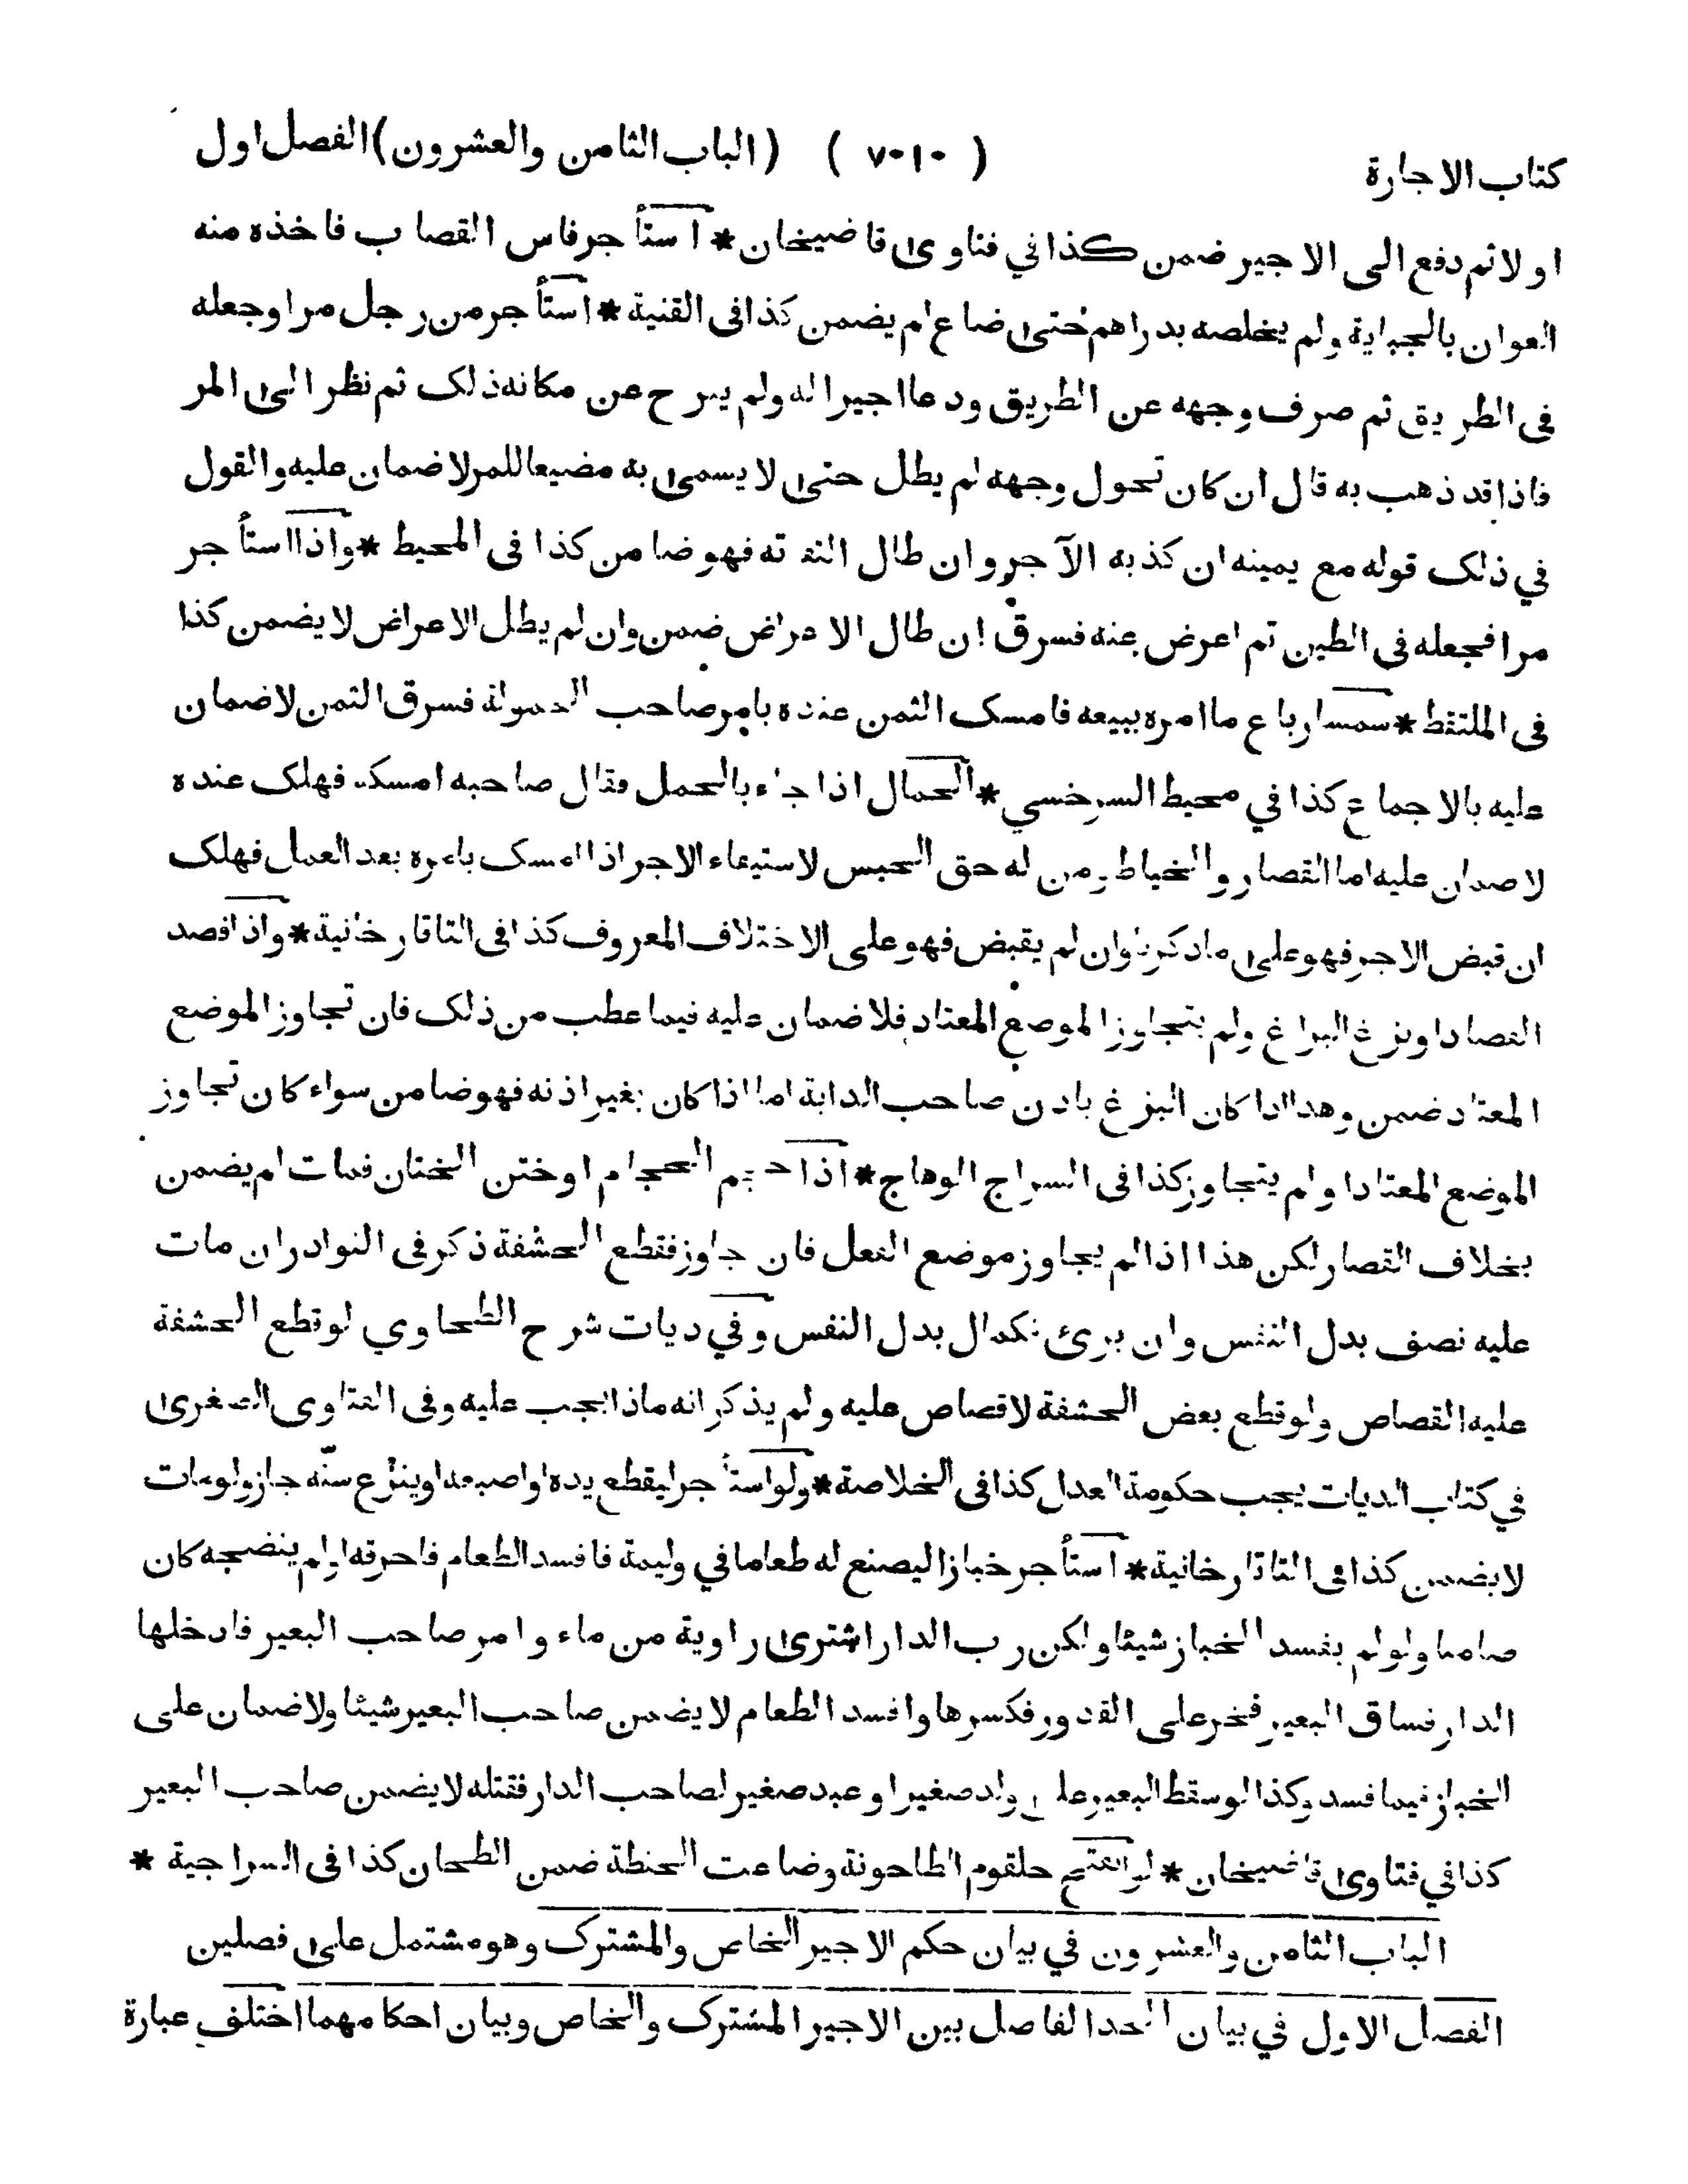 كتاب الاجارة ( ٧٠١٠ ) (الباب الثامن والعشرون) الفصل اول
او لا ثم دفع الى الاجير ضمن كذا في فتاوى قاضيخان * استأجر فاس القصاب فاخذه منه
العوان بالجباية ولم يخلصه بدراهم حتى ضاع لم يضمن كذا فى القنية * استأجر من رجل مرا وجعله
فى الطريق ثم صرف وجهه عن الطريق ودعا اجيرا له ولم يبرح عن مكانه ذلك ثم نظر الى المر
فاذا قد ذهب به قال ان كان تحول وجهه لم يطل حتى لا يسمى به مضيعا للمر لا ضمان عليه والقول
في ذلك قوله مع يمينه ان كذبه الآجر وان طال التفاته فهو ضامن كذا فى المحيط * واذا استأجر
مرا فجعله فى الطين ثم اعرض عنه فسرق ان طال الاعراض ضمن وان لم يطل الاعراض لا يضمن كذا
فى الملتقط * سمسار باع ما امره ببيعه فامسك الثمن عنده بامر صاحب الحمولة فسرق الثمن لا ضمان
عليه بالاجماع كذا في محيط السرخسي * الحمال اذا جاء بالحمل فقال صاحبه امسكه فهلك عنده
لا ضمان عليه اما القصار والخياط ومن له حق الحبس لاستيفاء الاجر اذا امسك بامره بعد العمل فهلك
ان قبض الاجر فهو على ما ذكرنا وان لم يقبض فهو على الاختلاف المعروف كذا فى التاتارخانية * واذا فصد
الفصاد او بزغ البزاغ ولم يتجاوز الموضع المعتاد فلا ضمان عليه فيما عطب من ذلك فان تجاوز الموضع
المعتاد ضمن وهذا اذا كان البزغ باذن صاحب الدابة اما اذا كان بغير اذنه فهو ضامن سواء كان تجاوز
الموضع المعتاد او لم يتجاوز كذا فى السراج الوهاج * اذا حجم الحجام او ختن الختان فمات لم يضمن
بخلاف القصار لكن هذا اذا لم يجاوز موضع الفعل فان جاوز فقطع الحشفة ذكر فى النوادر ان مات
عليه نصف بدل النفس وان برئ فكمال بدل النفس وفي ديات شرح الطحاوي لو قطع الحشفة
عليه القصاص ولو قطع بعض الحشفة لا قصاص عليه ولم يذكر انه ماذا يجب عليه وفى الفتاوى الصغرى
في كتاب الديات يجب حكومة العدل كذا فى الخلاصة * ولو استأجر ليقطع يده او اصبعه او ينزع سنه جاز ولو مات
لا يضمن كذا فى التاتارخانية * استأجر خبازا ليصنع له طعاما في وليمة فافسد الطعام فاحرقه او لم ينضجه كان
ضامنا ولو لم يفسد الخباز شيئا ولكن رب الدار اشترى راوية من ماء وامر صاحب البعير فادخلها
الدار فساق البعير فخر على القدور فكسرها وافسد الطعام لا يضمن صاحب البعير شيئا ولا ضمان على
الخباز فيما فسد وكذا لو سقط البعير على ولد صغير او عبد صغير لصاحب الدار فقتله لا يضمن صاحب البعير
كذا في فتاوى قاضيخان * لو انفتح حلقوم الطاحونة وضاعت الحنطة ضمن الطحان كذا فى السراجية *
الباب الثامن والعشرون في بيان حكم الاجير الخاص والمشترك وهو مشتمل على فصلين
الفصل الاول في بيان الحد الفاصل بين الاجير المشترك والخاص وبيان احكامهما اختلف عبارة